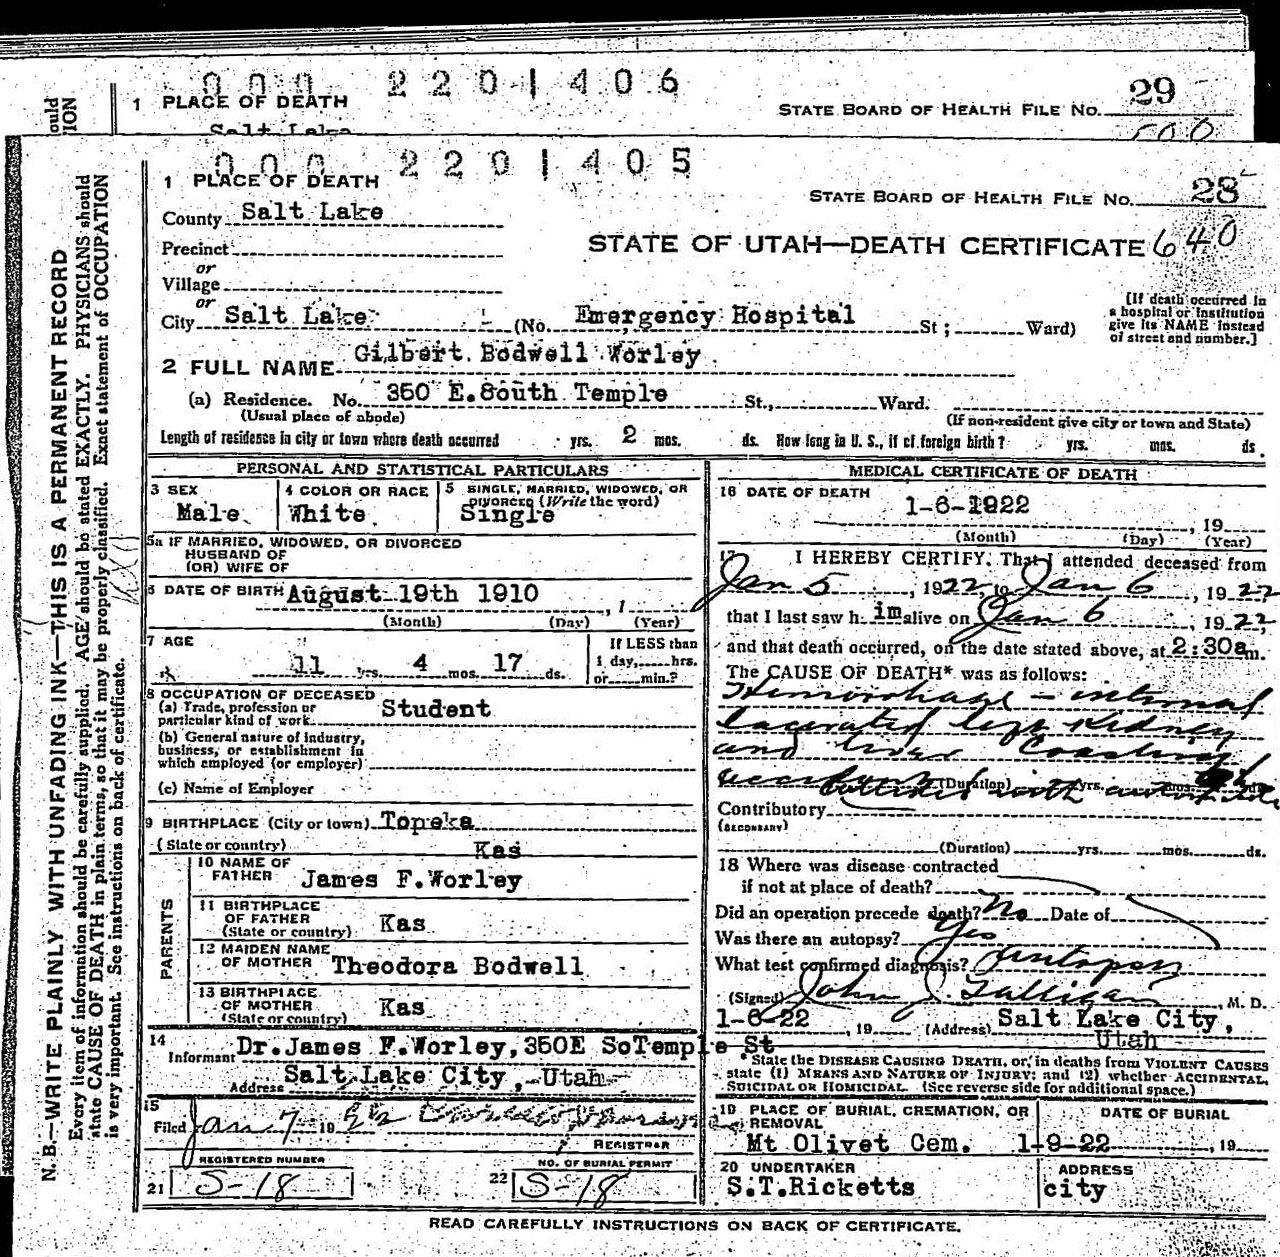 000 2201406
1 PLACE OF DEATH
STATE BOARD OF HEALTH FILE No. 29
Salt Lake
500
000 2201405
1 PLACE OF DEATH
STATE BOARD OF HEALTH FILE No. 28
County Salt Lake
STATE OF UTAH—DEATH CERTIFICATE 640
Precinct
or
Village
or
City Salt Lake (No. Emergency Hospital St; Ward)
[If death occurred in
a hospital or institution
give its NAME instead
of street and number.]
2 FULL NAME Gilbert Bodwell Worley
(a) Residence. No. 350 E.South Temple St., Ward.
(Usual place of abode) (If non-resident give city or town and State)
Length of residence in city or town where death occurred yrs. 2 mos. ds. How long in U. S., if of foreign birth? yrs. mos. ds.
PERSONAL AND STATISTICAL PARTICULARS
3 SEX
Male
4 COLOR OR RACE
White
5 SINGLE, MARRIED, WIDOWED, OR
DIVORCED (Write the word)
Single
5a IF MARRIED, WIDOWED, OR DIVORCED
HUSBAND OF
(OR) WIFE OF
6 DATE OF BIRTH August 19th 1910 , 1
(Month) (Day) (Year)
7 AGE
11 yrs. 4 mos. 17 ds.
If LESS than
1 day, hrs.
or min.?
8 OCCUPATION OF DECEASED
(a) Trade, profession or
particular kind of work Student
(b) General nature of industry,
business, or establishment in
which employed (or employer)
(c) Name of Employer
9 BIRTHPLACE (City or town) Topeka
(State or country) Kas
PARENTS
10 NAME OF
FATHER James F.Worley
11 BIRTHPLACE
OF FATHER
(State or country) Kas
12 MAIDEN NAME
OF MOTHER Theodora Bodwell
13 BIRTHPLACE
OF MOTHER
(State or country) Kas
14
Informant Dr.James F.Worley,350E SoTemple St
Address Salt Lake City, Utah
15
Filed Jan 7 19 22
REGISTRAR
REGISTERED NUMBER
21 S-18
NO. OF BURIAL PERMIT
22 S-18
MEDICAL CERTIFICATE OF DEATH
16 DATE OF DEATH
1-6-1922 , 19
(Month) (Day) (Year)
17 I HEREBY CERTIFY, That I attended deceased from
Jan 5 , 1922, to Jan 6 , 1922
that I last saw h im alive on Jan 6 , 1922,
and that death occurred, on the date stated above, at 2:30a m.
The CAUSE OF DEATH* was as follows:
Hemorrhage - internal
lacerated left Kidney
and liver Coasting
accident
(Duration) yrs. mos. ds.
collided with automobile
Contributory
(SECONDARY)
(Duration) yrs. mos. ds.
18 Where was disease contracted
if not at place of death?
Did an operation precede death? No Date of
Was there an autopsy? Yes
What test confirmed diagnosis? Autopsy
(Signed) John J. Galligan, M. D.
1-6-22 , 19 (Address) Salt Lake City,
Utah
*State the DISEASE CAUSING DEATH, or, in deaths from VIOLENT CAUSES
state (1) MEANS AND NATURE OF INJURY; and (2) whether ACCIDENTAL,
SUICIDAL OR HOMICIDAL. (See reverse side for additional space.)
19 PLACE OF BURIAL, CREMATION, OR
REMOVAL
Mt Olivet Cem.
DATE OF BURIAL
1-9-22 , 19
20 UNDERTAKER
S.T.Ricketts
ADDRESS
city
READ CAREFULLY INSTRUCTIONS ON BACK OF CERTIFICATE.
N. B.—WRITE PLAINLY WITH UNFADING INK—THIS IS A PERMANENT RECORD
Every item of information should be carefully supplied. AGE should be stated EXACTLY. PHYSICIANS should
state CAUSE OF DEATH in plain terms, so that it may be properly classified. Exact statement of OCCUPATION
is very important. See instructions on back of certificate.